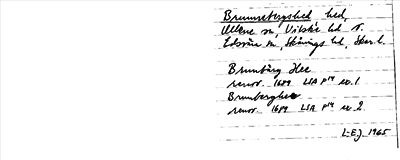 Brunnsbergshed hed,
Ullene sn, Vilske hd o.
Edsvära sn, Skånings hd, Skar.l.
Brunbärg Hee
renov. 1689 LSA P14 nr. 1
Brunberghee
renov. 1689 LSA P14 nr 2
L-Ej 1965